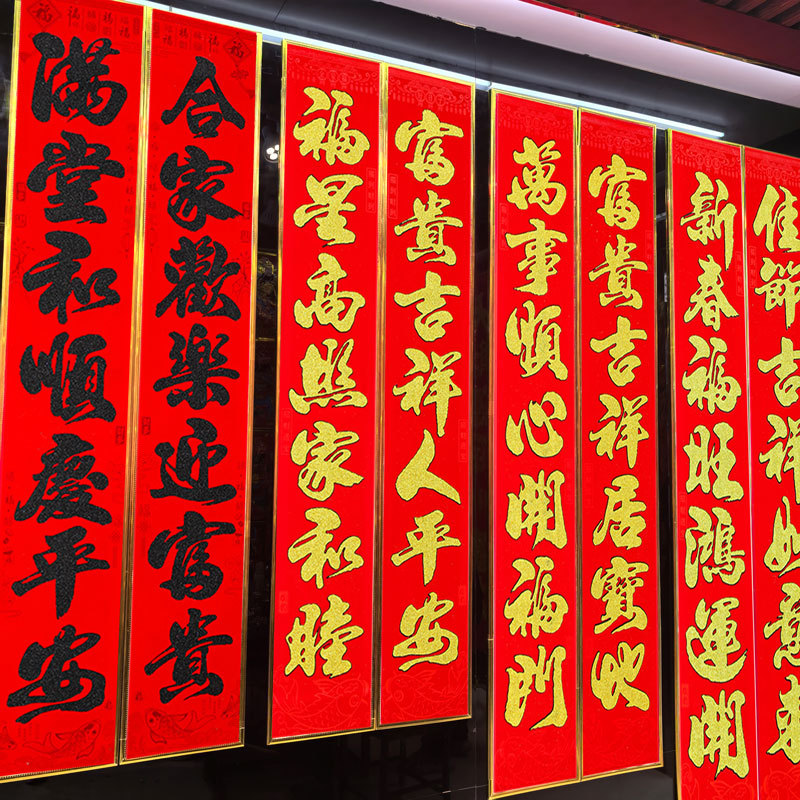 满堂和順慶平安
合家歡樂迎富貴
福星高照家和睦
富貴吉祥人平安
萬事順心開福門
富貴吉祥居寶地
新春福旺鴻運開
佳節吉祥如意來